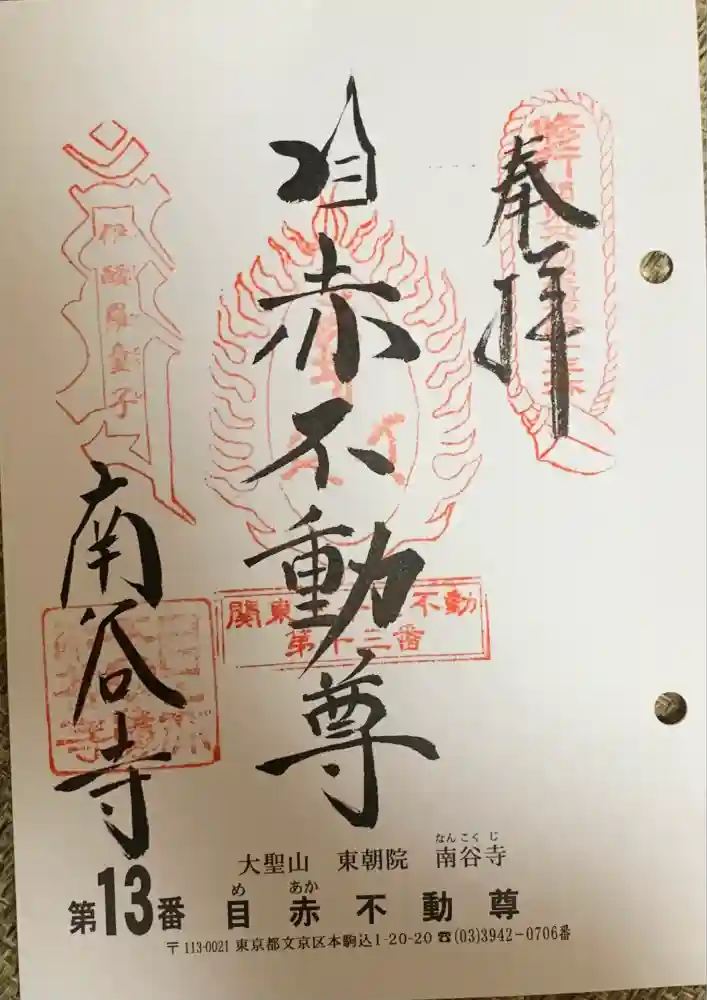 奉拝
目赤不動尊
南谷寺
伊醯羅童子
第十三番
大聖山 東朝院 南谷寺
なんこくじ
第13番 目赤不動尊
め あか
〒113-0021 東京都文京区本駒込1-20-20 ☎(03)3942-0706番